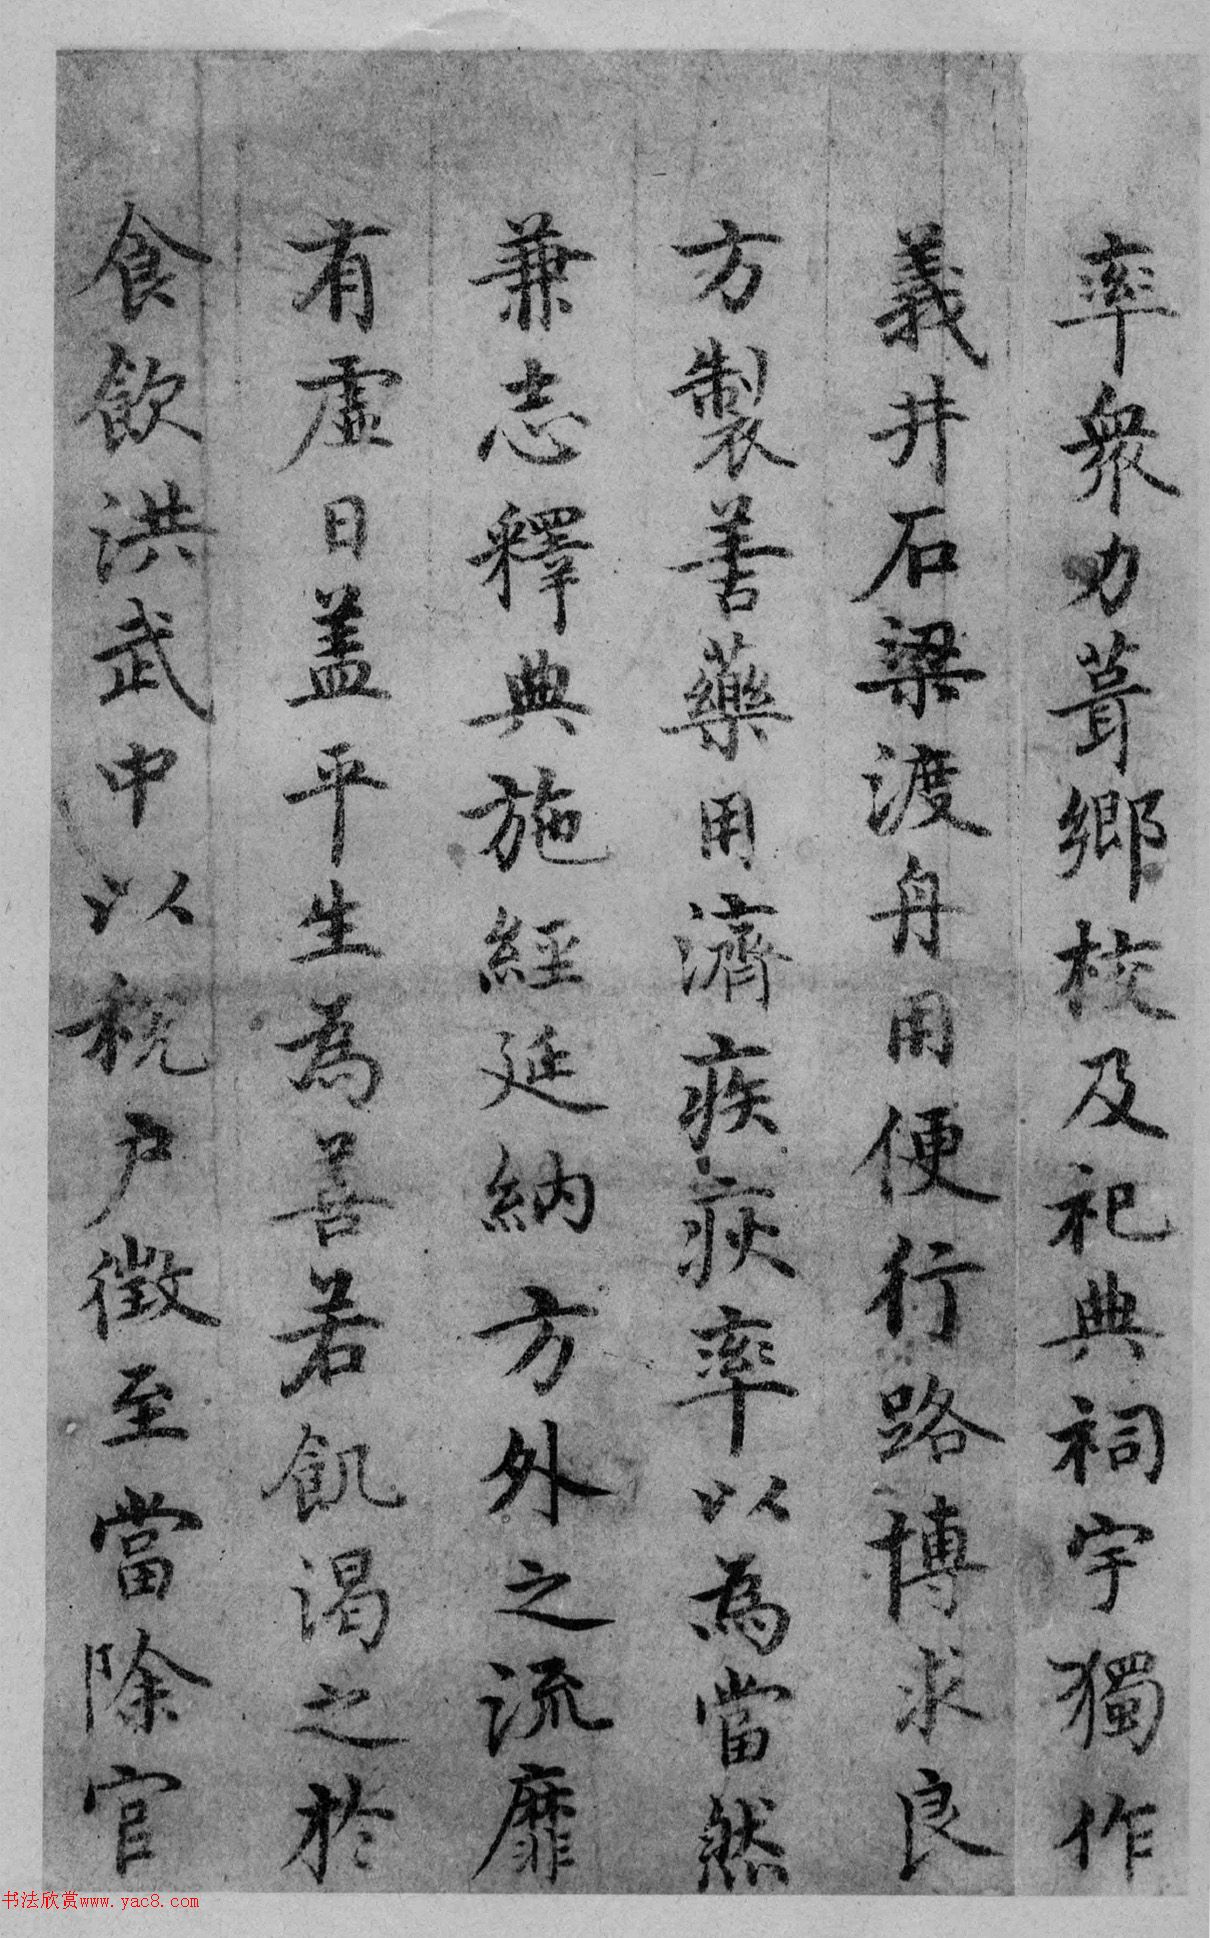 率衆力葺鄉校及祀典祠宇獨作
義井石梁渡舟用便行路博求良
方製善藥用濟疾疢率以為當然
兼志釋典施經延納方外之流靡
有虛日盖平生為善若飢渴之於
食飲洪武中以稅戶徵至當除官
书法欣赏www.yac8.com